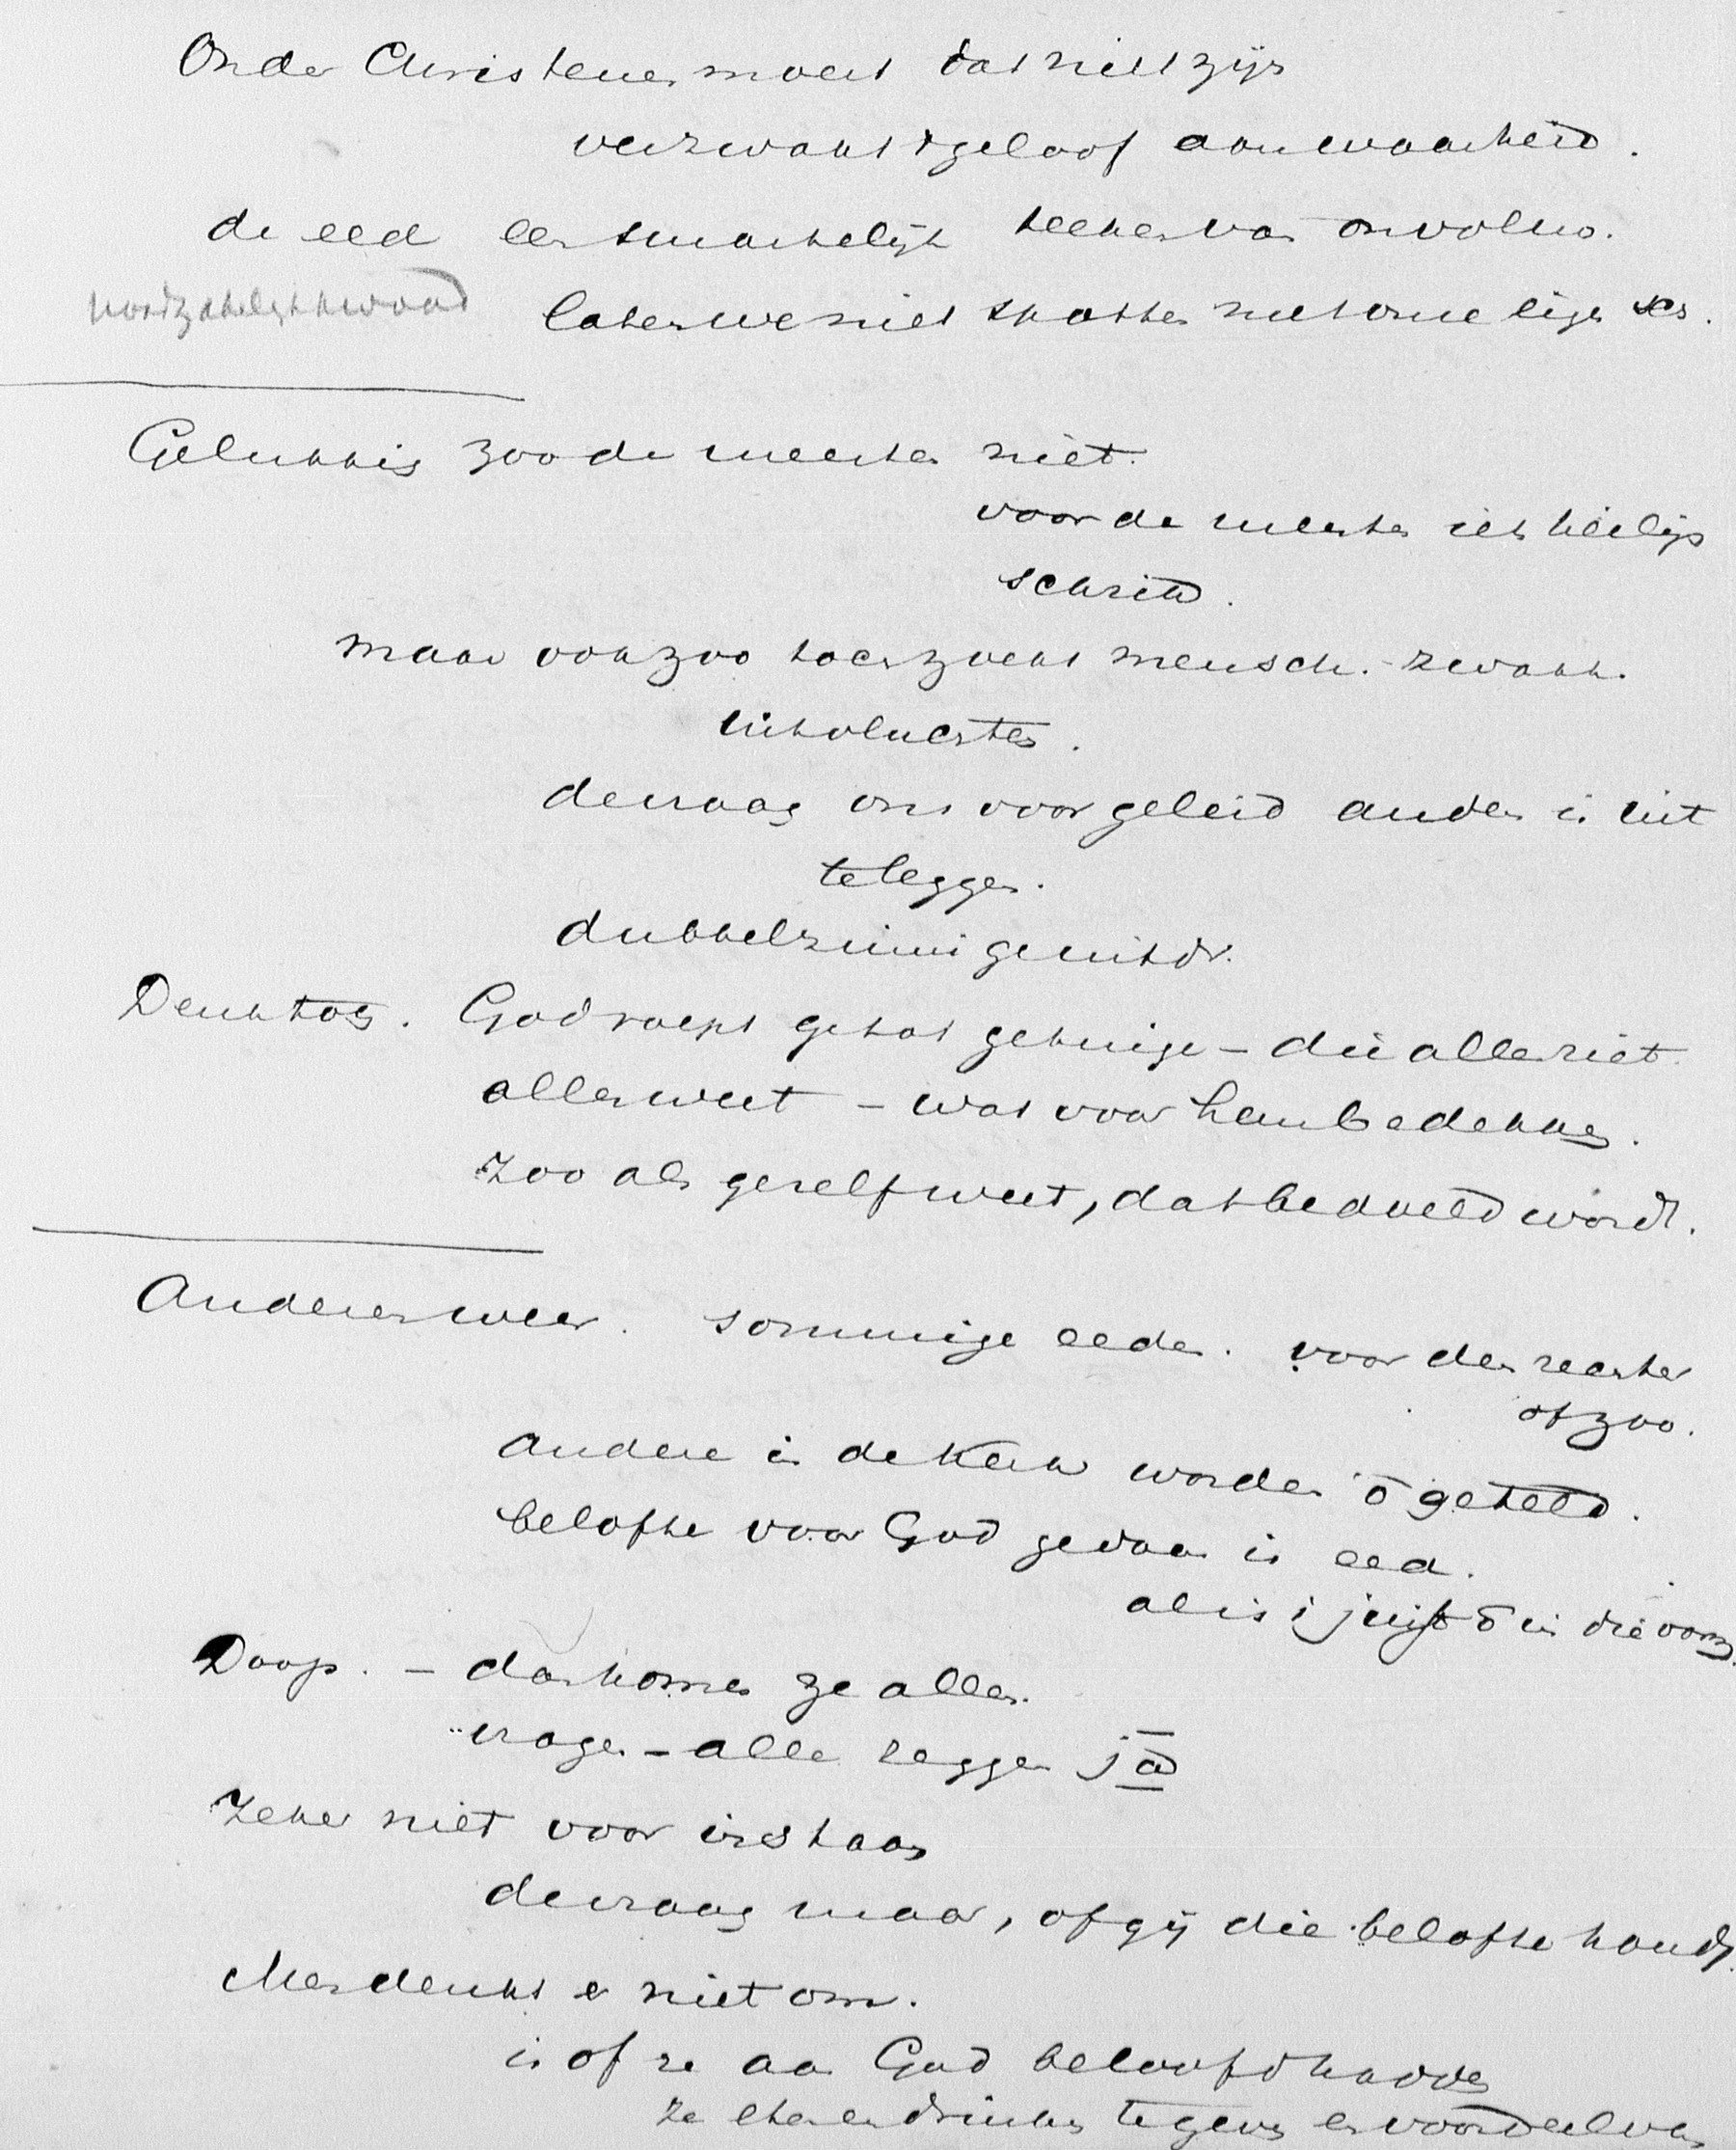 Onder Christenen moest dat niet zijn
verzwakt 't geloof aan waarheid.
de eed een smartelijk teeken van onvolm.
noodzakelijk kwaad
laten we niet spotten met onze eigen
Gelukkig zoo de meesten niet.
voor de meesten iets heiligs
schrik.
maar ook zoo toch zoekt mensch. zwakk.
uitvluchten.
de vraag ons voorgeleid anders is uit
te leggen.
dubbelzinnige uitdr.
Denk toch. God roept ge tot getuige - die alles ziet.
alles weet - wat voor hem bedekking.
Zoo als ge zelf weet, dat bedoeld wordt.
Anderen weer. sommige eeden. voor den rechter
of zoo.
andere in de Kerk worden ō geteld.
belofte voor God gedaan is eed.
al is 't juist ō in die vorm.
Doop. - dan komen ze allen.
vragen - alle zeggen ja
Zeker niet voor instaan
de vraag maar, of gij die belofte houdt.
Men denkt er niet om.
is of ze aan God beloofd hadden
ze eten en drinken tegens er voordeel van